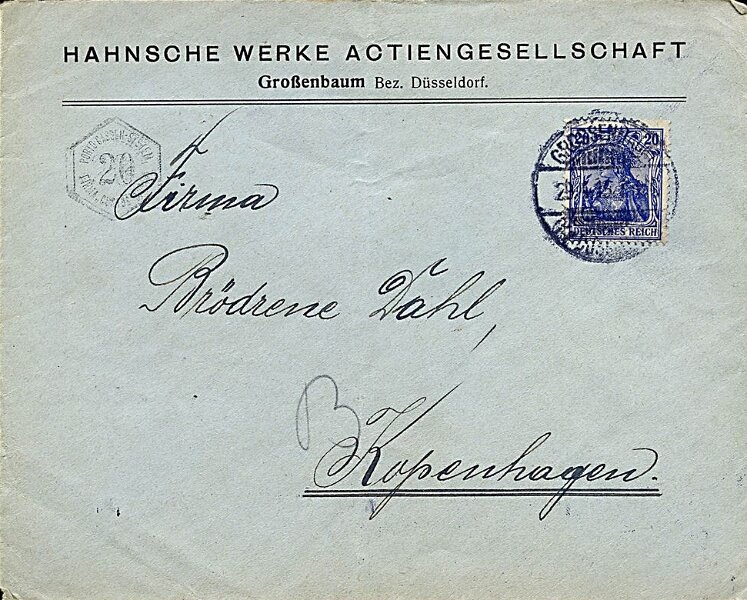 HAHNSCHE WERKE ACTIENGESELLSCHAFT
Großenbaum Bez. Düsseldorf.
20
20
DEUTSCHES REICH
Firma
Brödrene Dahl,
B
Kopenhagen.